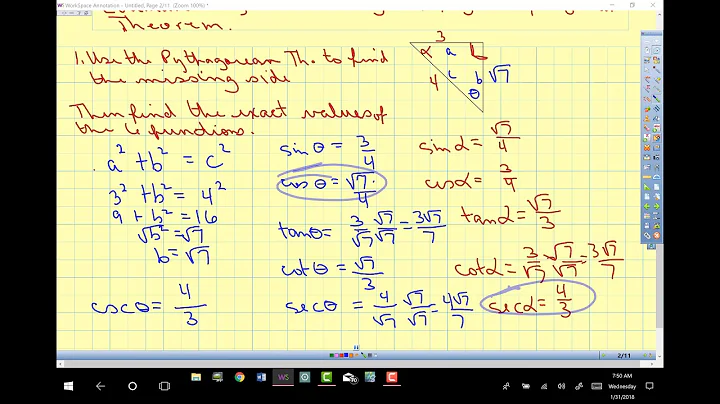 WorkSpace Annotation - Untitled, Page 2/11 (Zoom 100%) *
Theorem.
1. Use the Pythagorean Th. to find
the missing side
Then find the exact values of
the 6 functions.
a² + b² = c²
3² + b² = 4²
9 + b² = 16
√b² = √7
b = √7
cscθ = 4/3
3
α a
4 c b √7
θ
sinθ = 3/4
cosθ = √7/4
tanθ = 3/√7 √7/√7 = 3√7/7
cotθ = √7/3
secθ = 4/√7 √7/√7 = 4√7/7
sinα = √7/4
cosα = 3/4
tanα = √7/3
cotα = 3/√7 √7/√7 = 3√7/7
secα = 4/3
2/11
7:50 AM
Wednesday
1/31/2018